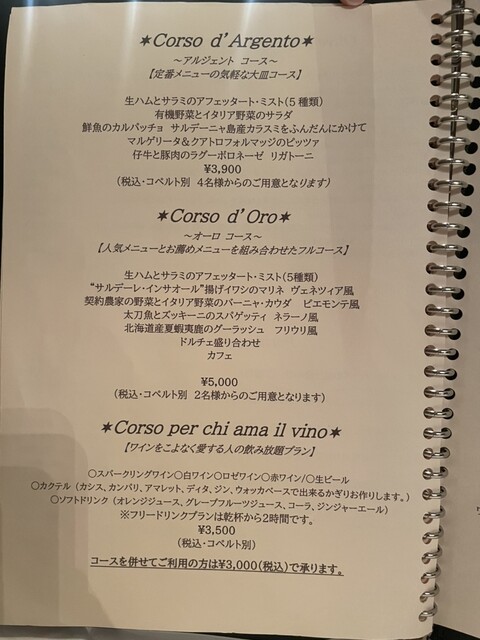 ✶Corso d'Argento✶
～アルジェント コース～
【定番メニューの気軽な大皿コース】
生ハムとサラミのアフェッタート・ミスト(5種類)
有機野菜とイタリア野菜のサラダ
鮮魚のカルパッチョ サルデーニャ島産カラスミをふんだんにかけて
マルゲリータ&クアトロフォルマッジのピッツァ
仔牛と豚肉のラグーボロネーゼ リガトーニ
¥3,900
(税込・コペルト別 4名様からのご用意となります)
✶Corso d'Oro✶
～オーロ コース～
【人気メニューとお薦めメニューを組み合わせたフルコース】
生ハムとサラミのアフェッタート・ミスト(5種類)
“サルデーレ・インサオール”揚げイワシのマリネ ヴェネツィア風
契約農家の野菜とイタリア野菜のバーニャ・カウダ ピエモンテ風
太刀魚とズッキーニのスパゲッティ ネラーノ風
北海道産夏蝦夷鹿のグーラッシュ フリウリ風
ドルチェ盛り合わせ
カフェ
¥5,000
(税込・コペルト別 2名様からのご用意となります)
✶Corso per chi ama il vino✶
【ワインをこよなく愛する人の飲み放題プラン】
○スパークリングワイン○白ワイン○ロゼワイン○赤ワイン/○生ビール
○カクテル (カシス、カンパリ、アマレット、ディタ、ジン、ウォッカベースで出来るかぎりお作りします。)
○ソフトドリンク (オレンジジュース、グレープフルーツジュース、コーラ、ジンジャーエール)
※フリードリンクプランは乾杯から2時間です。
¥3,500
(税込・コペルト別)
コースを併せてご利用の方は¥3,000(税込)で承ります。